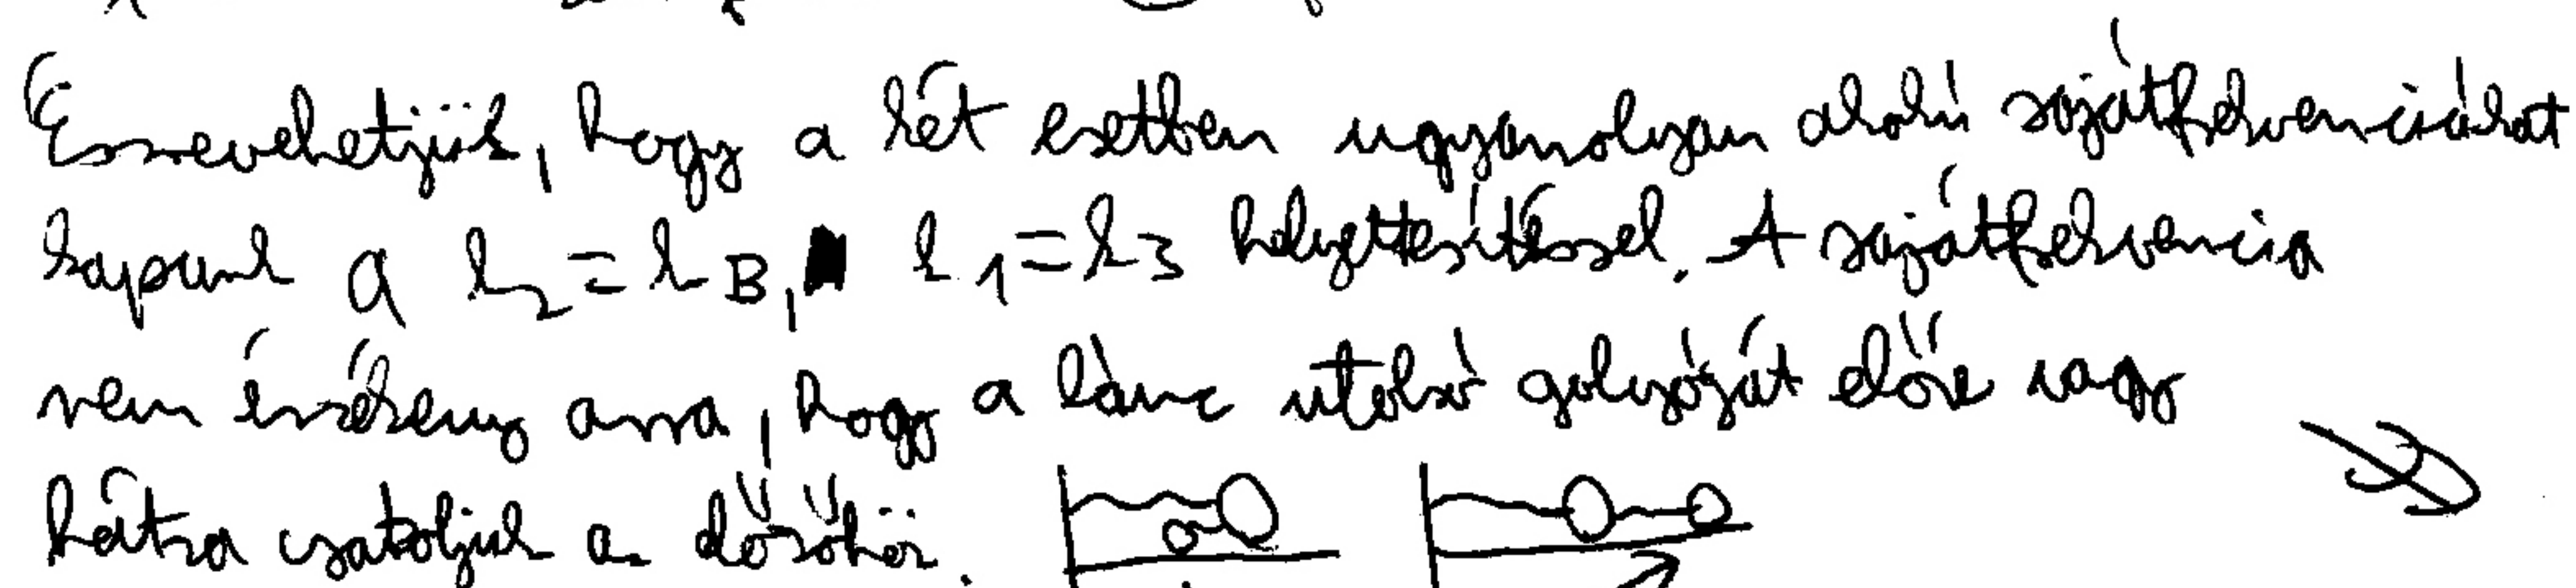 Észrevehetjük, hogy a két esetben ugyanolyan alakú sajátfrekvenciákat
kapunk a k₂ = k_B, k₁ = k₃ helyettesítéssel. A sajátfrekvencia
nem érzékeny arra, hogy a lánc utolsó golyóját előre vagy
hátra csatoljuk az előzőhöz.